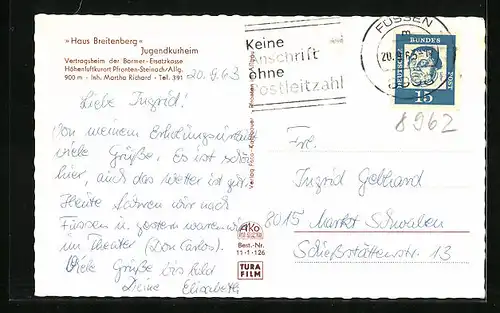 »Haus Breitenberg«
Jugendkurheim
Vertragsheim der Barmer-Ersatzkasse
Höhenluftkurort Pfronten-Steinach/Allg.
900 m - Inh. Martha Richard - Tel. 391
20.9.63
Liebe Ingrid!
Von meinem Erholungsurlaub
viele Grüße. Es ist schön
hier, auch das Wetter ist gut.
Heute fahren wir nach
Füssen u. gestern waren wir
im Theater (Don Carlos).
Viele Grüße bis bald
Deine Elisabeth
Ako
Best.-Nr.
11-1-126
TURA
FILM
Keine
Anschrift
ohne
Postleitzahl
FÜSSEN
DEUTSCHE
BUNDES
POST
15
8962
Frl.
Ingrid Gebhard
8015 Markt Schwaben
Schießstättenstr. 13